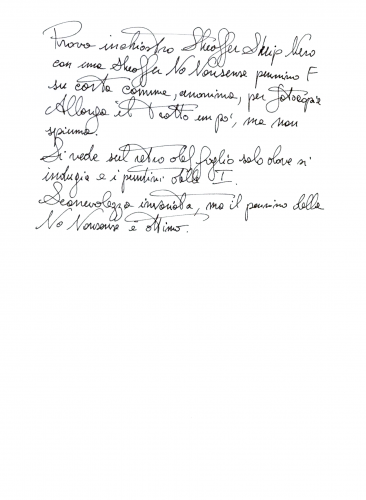 Prova inchiostro Sheaffer Skrip Nero
con una Sheaffer No Nonsense pennino F
su carta comune, anonima, per fotocopie
Allonga il tratto un po', ma non
spiuma.
Si vede sul retro del foglio solo dove si
indugia e i puntini delle I.
Scorrevolezza invariata, ma il pennino della
No Nonsense è ottimo.